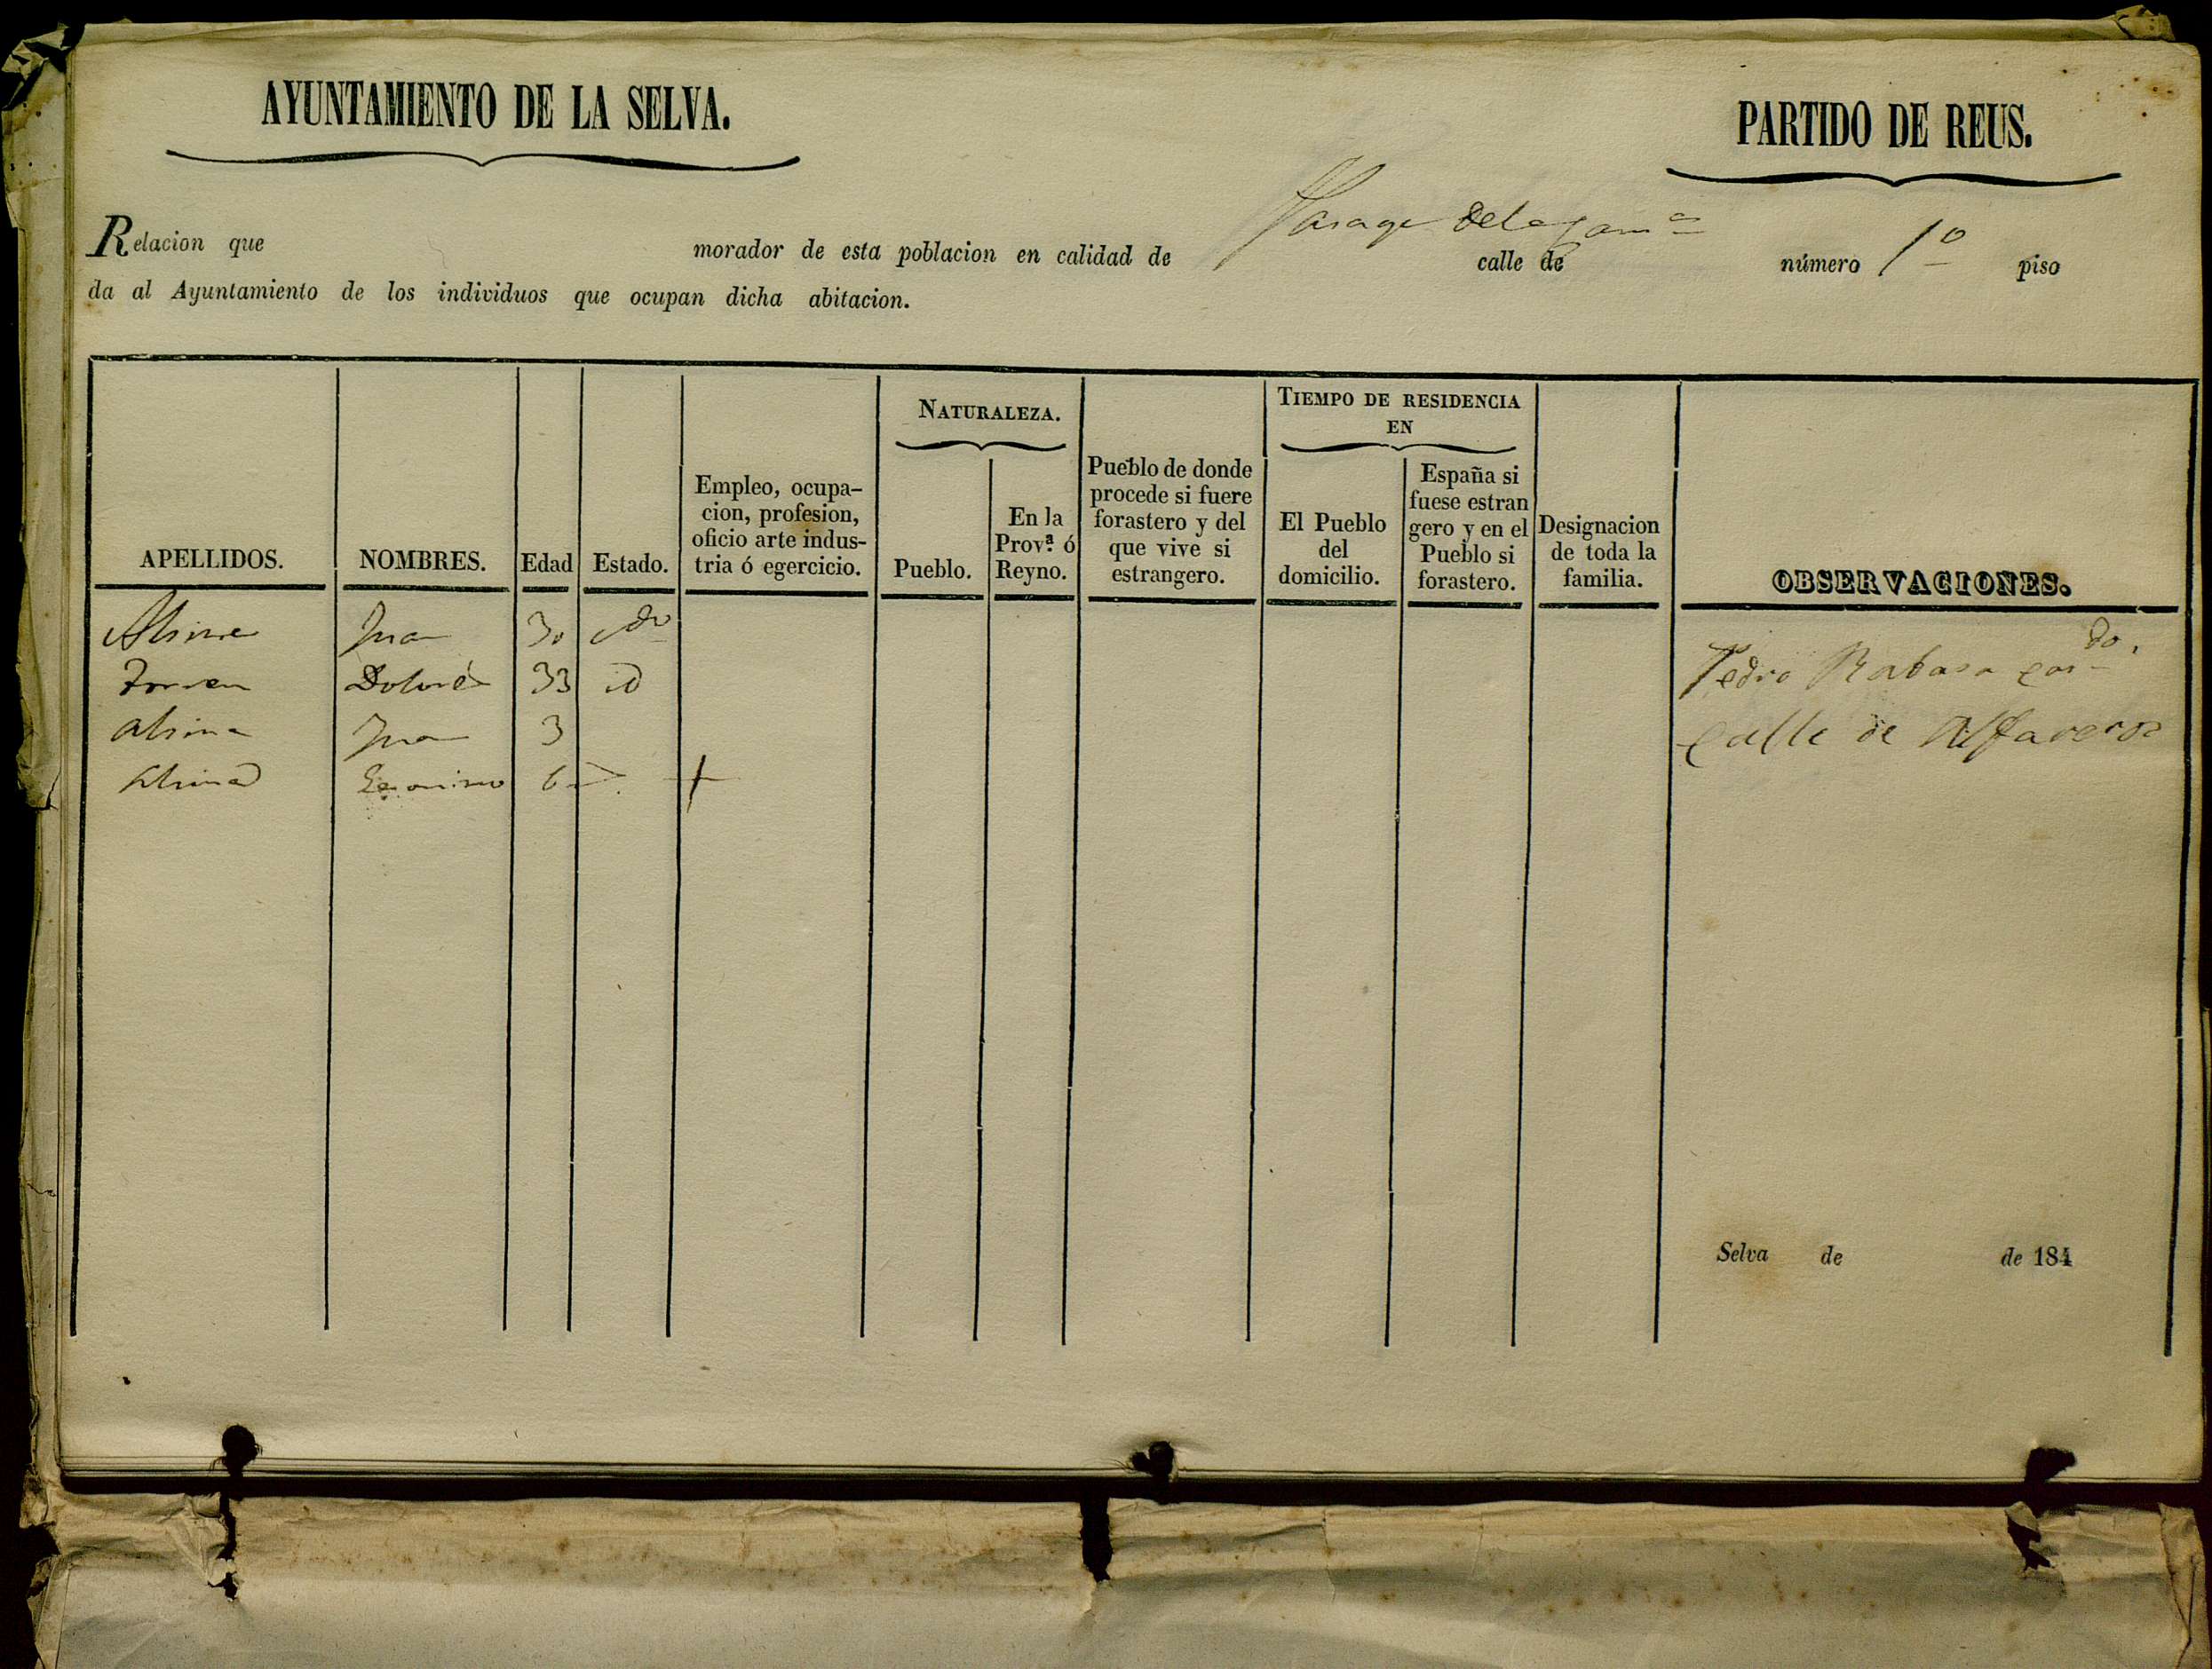 AYUNTAMIENTO DE LA SELVA.
PARTIDO DE REUS.
Relacion que morador de esta poblacion en calidad de calle de número 1º piso
da al Ayuntamiento de los individuos que ocupan dicha abitacion.
APELLIDOS.
NOMBRES.
Edad
Estado.
Empleo, ocupa-
cion, profesion,
oficio arte indus-
tria ó egercicio.
NATURALEZA.
Pueblo.
En la
Provª ó
Reyno.
Pueblo de donde
procede si fuere
forastero y del
que vive si
estrangero.
TIEMPO DE RESIDENCIA
EN
El Pueblo
del
domicilio.
España si
fuese estran
gero y en el
Pueblo si
forastero.
Designacion
de toda la
familia.
OBSERVACIONES.
Alsina Juan 30
Dolores 33 id
Alsina Juan 3
Alsina Geronimo 6
Pedro Rabasa
calle de Alfareros
Selva de de 184